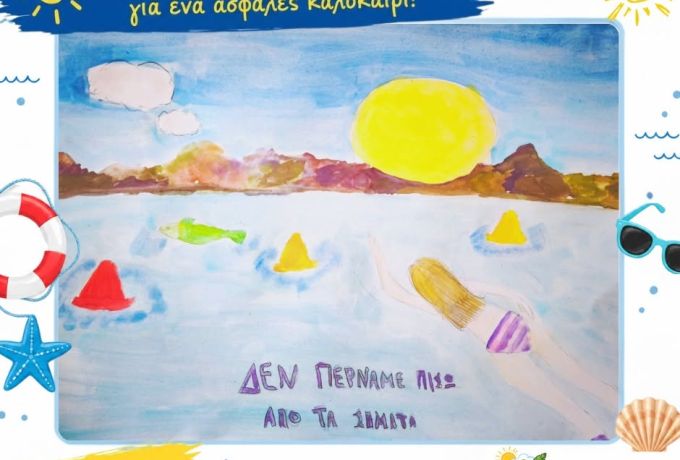 για ένα ασφαλές καλοκαίρι!
ΔΕΝ ΠΕΡΝΑΜΕ ΠΙΣΩ
ΑΠΟ ΤΑ ΣΗΜΑΤΑ